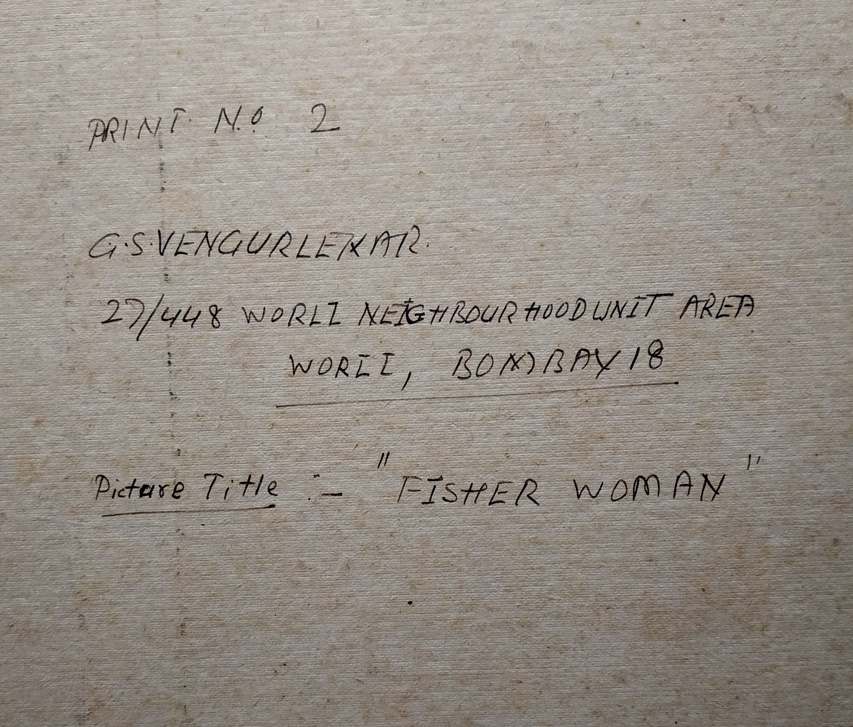 PRINT NO 2
G.S.VENGURLEKAR.
27/448 WORLI NEIGHBOURHOOD UNIT AREA
WORLI, BOMBAY 18
Picture Title :- "FISHER WOMAN"